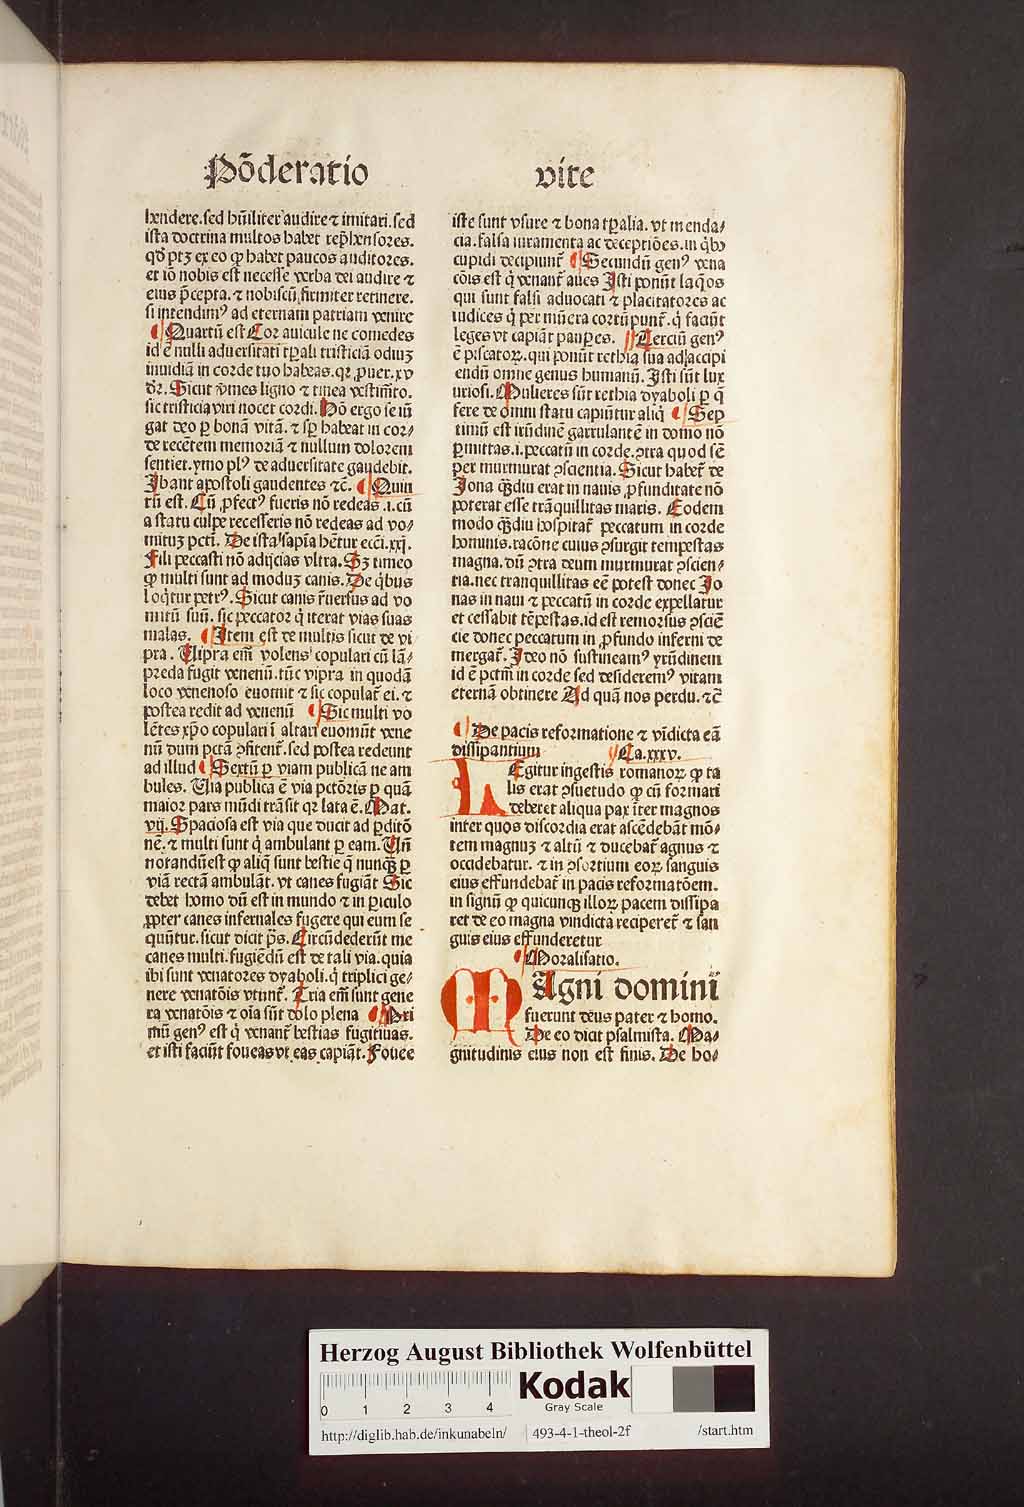 Põderatio
vite
hendere.sed hũiliter audire ⁊ imitari.sed
ista doctrina multos habet rep̄hensores.
qď ptꝫ ex eo ꝙ habet paucos auditores.
et iō nobis est necesse verba dei audire ⁊
eius p̄cepta.⁊ nobiscũ firmiter retinere.
si intendimꝰ ad eternam patriam venire
¶ Quartũ est Cor auicule ne comedes
id ē nulli aduersitati tꝑali tristiciã odiuꝫ
inuidiã in corde tuo habeas.qꝛ ꝓuer.xv
dꝛ̄. Sicut v̄mes ligno ⁊ tinea vestim̄to.
sic tristicia viri nocet cordi. Nõ ergo se iũ
gat deo ꝑ bonã vitã.⁊ sꝑ habeat in cor⸗
de recẽtem memoriã ⁊ nullum dolorem
sentiet.ymo plꝰ de aduersitate gaudebit.
Ibant apostoli gaudentes ⁊c̄. ¶ Quin
tũ est. Cũ ꝑfectꝰ fueris nõ redeas .i.cũ
a statu culpe recesseris nõ redeas ad vo⸗
mituꝫ pcti. De ista sapĩa hētur ecci.xxj.
Fili peccasti nõ adijcias vltra. Sꝫ timeo
ꝙ multi sunt ad moduꝫ canis. De q̄bus
loq̄tur petrꝰ. Sicut canis r̄uersus ad vo
mitũ suũ. sic peccator q̄ iterat vias suas
malas. ¶ Item est de multis sicut de vi
pra. Uipra em̄ volens copulari cũ lã⸗
preda fugit venenũ.tũc vipra in quodã
loco venenoso euomit ⁊ sic copulat̄ ei.⁊
postea redit ad venenũ ¶ Sic multi vo
lẽtes xp̄o copulari ĩ altari euomũt vene
nũ dum pctã ꝯfitent̄.sed postea redeunt
ad illud ¶ Sextũ ꝑ viam publicã ne am
bules. Uia publica ē via pctõris ꝑ quã
maior pars mũdi trãsit qꝛ lata ē. Mat.
vij. Spaciosa est via que ducit ad ꝑditõ
nē.⁊ multi sunt q̄ ambulant ꝑ eam. Uñ
notandũ est ꝙ aliq̄ sunt bestie q̄ nunqꝫ ꝑ
viã rectã ambulãt. vt canes fugiãt Sic
debet homo dũ est in mundo ⁊ in ꝑiculo
ꝓpter canes infernales fugere qui eum se
quũtur.sicut dicit p̄s. Circũdederũt me
canes multi.fugiẽdũ est de tali via.quia
ibi sunt venatores dyaboli.q̄ triplici ge⸗
nere venatõis vtunt̄. Tria em̄ sunt gene
ra venatõis ⁊ oĩa sũt dolo plena ¶ Pri
mũ genꝰ est q̄ venant̄ bestias fugitiuas.
et isti faciũt foueas vt eas capiãt. Fouee
iste sunt vsure ⁊ bona tꝑalia. vt menda⸗
cia.falsa iuramenta ac deceptiões.in q̄bꝫ
cupidi decipiunt̄ ¶ Secundũ genꝰ vena
cõis est q̄ venant̄ aues Isti ponũt laq̄os
qui sunt falsi aduocati ⁊ placitatores ac
iudices q̄ per mũera corrũpunt̄.q̄ faciũt
leges vt capiãt pauꝑes. ¶ Terciũ genꝰ
ē piscatoꝝ.qui ponũt rethia sua ad accipi
endũ omne genus humanũ. Isti sũt lux
uriosi. Mulieres sũt rethia dyaboli ꝑ q̄
fere de omni statu capiũtur aliq̄ ¶ Sep
timũ est irũdinē garrulantē in domo nõ
ꝑmittas.i.peccatũ in corde.ꝯtra quod sē
per murmurat ꝯscientia. Sicut habet̄ de
Iona qͣdiu erat in nauis ꝓfunditate nõ
poterat esse trãquillitas maris. Eodem
modo qͣdiu hospitat̄ peccatum in corde
hominis.racõne cuius ꝯsurgit tempestas
magna.dũ ꝯtra deum murmurat ꝯscien⸗
tia.nec tranquillitas eē potest donec Io
nas in naui ⁊ peccatũ in corde expellatur
et cessabit tēpestas.id est remorsus ꝯsciē
cie donec peccatum in ꝓfundo inferni de
mergat̄. Ideo nõ sustineamꝰ yrũdinem
id ē pctm̄ in corde sed desideremꝰ vitam
eternã obtinere Ad quã nos perdu.⁊c̄
¶ De pacis reformatione ⁊ vĩdicta eã
dissipantium ¶ Ca.xxxv.
LEgitur in gestis romanoꝝ ꝙ ta
lis erat ꝯsuetudo ꝙ cũ formari
deberet aliqua pax ĩter magnos
inter quos discordia erat ascẽdebãt mõ⸗
tem magnuꝫ ⁊ altũ ⁊ ducebat̄ agnus ⁊
occidebatur.⁊ in ꝯsortium eoꝝ sanguis
eius effundebat̄ in pacis reformatõem.
in signũ ꝙ quicunqꝫ illoꝝ pacem dissipa
ret de eo magna vindicta reciperet̄ ⁊ san
guis eius effunderetur
¶ Moralisatio.
MAgni domini
fuerunt deus pater ⁊ homo.
De eo dicit psalmista. Ma⸗
gnitudinis eius non est finis. De ho⸗
Herzog August Bibliothek Wolfenbüttel
0 1 2 3 4
Kodak
Gray Scale
http://diglib.hab.de/inkunabeln/ 493-4-1-theol-2f /start.htm